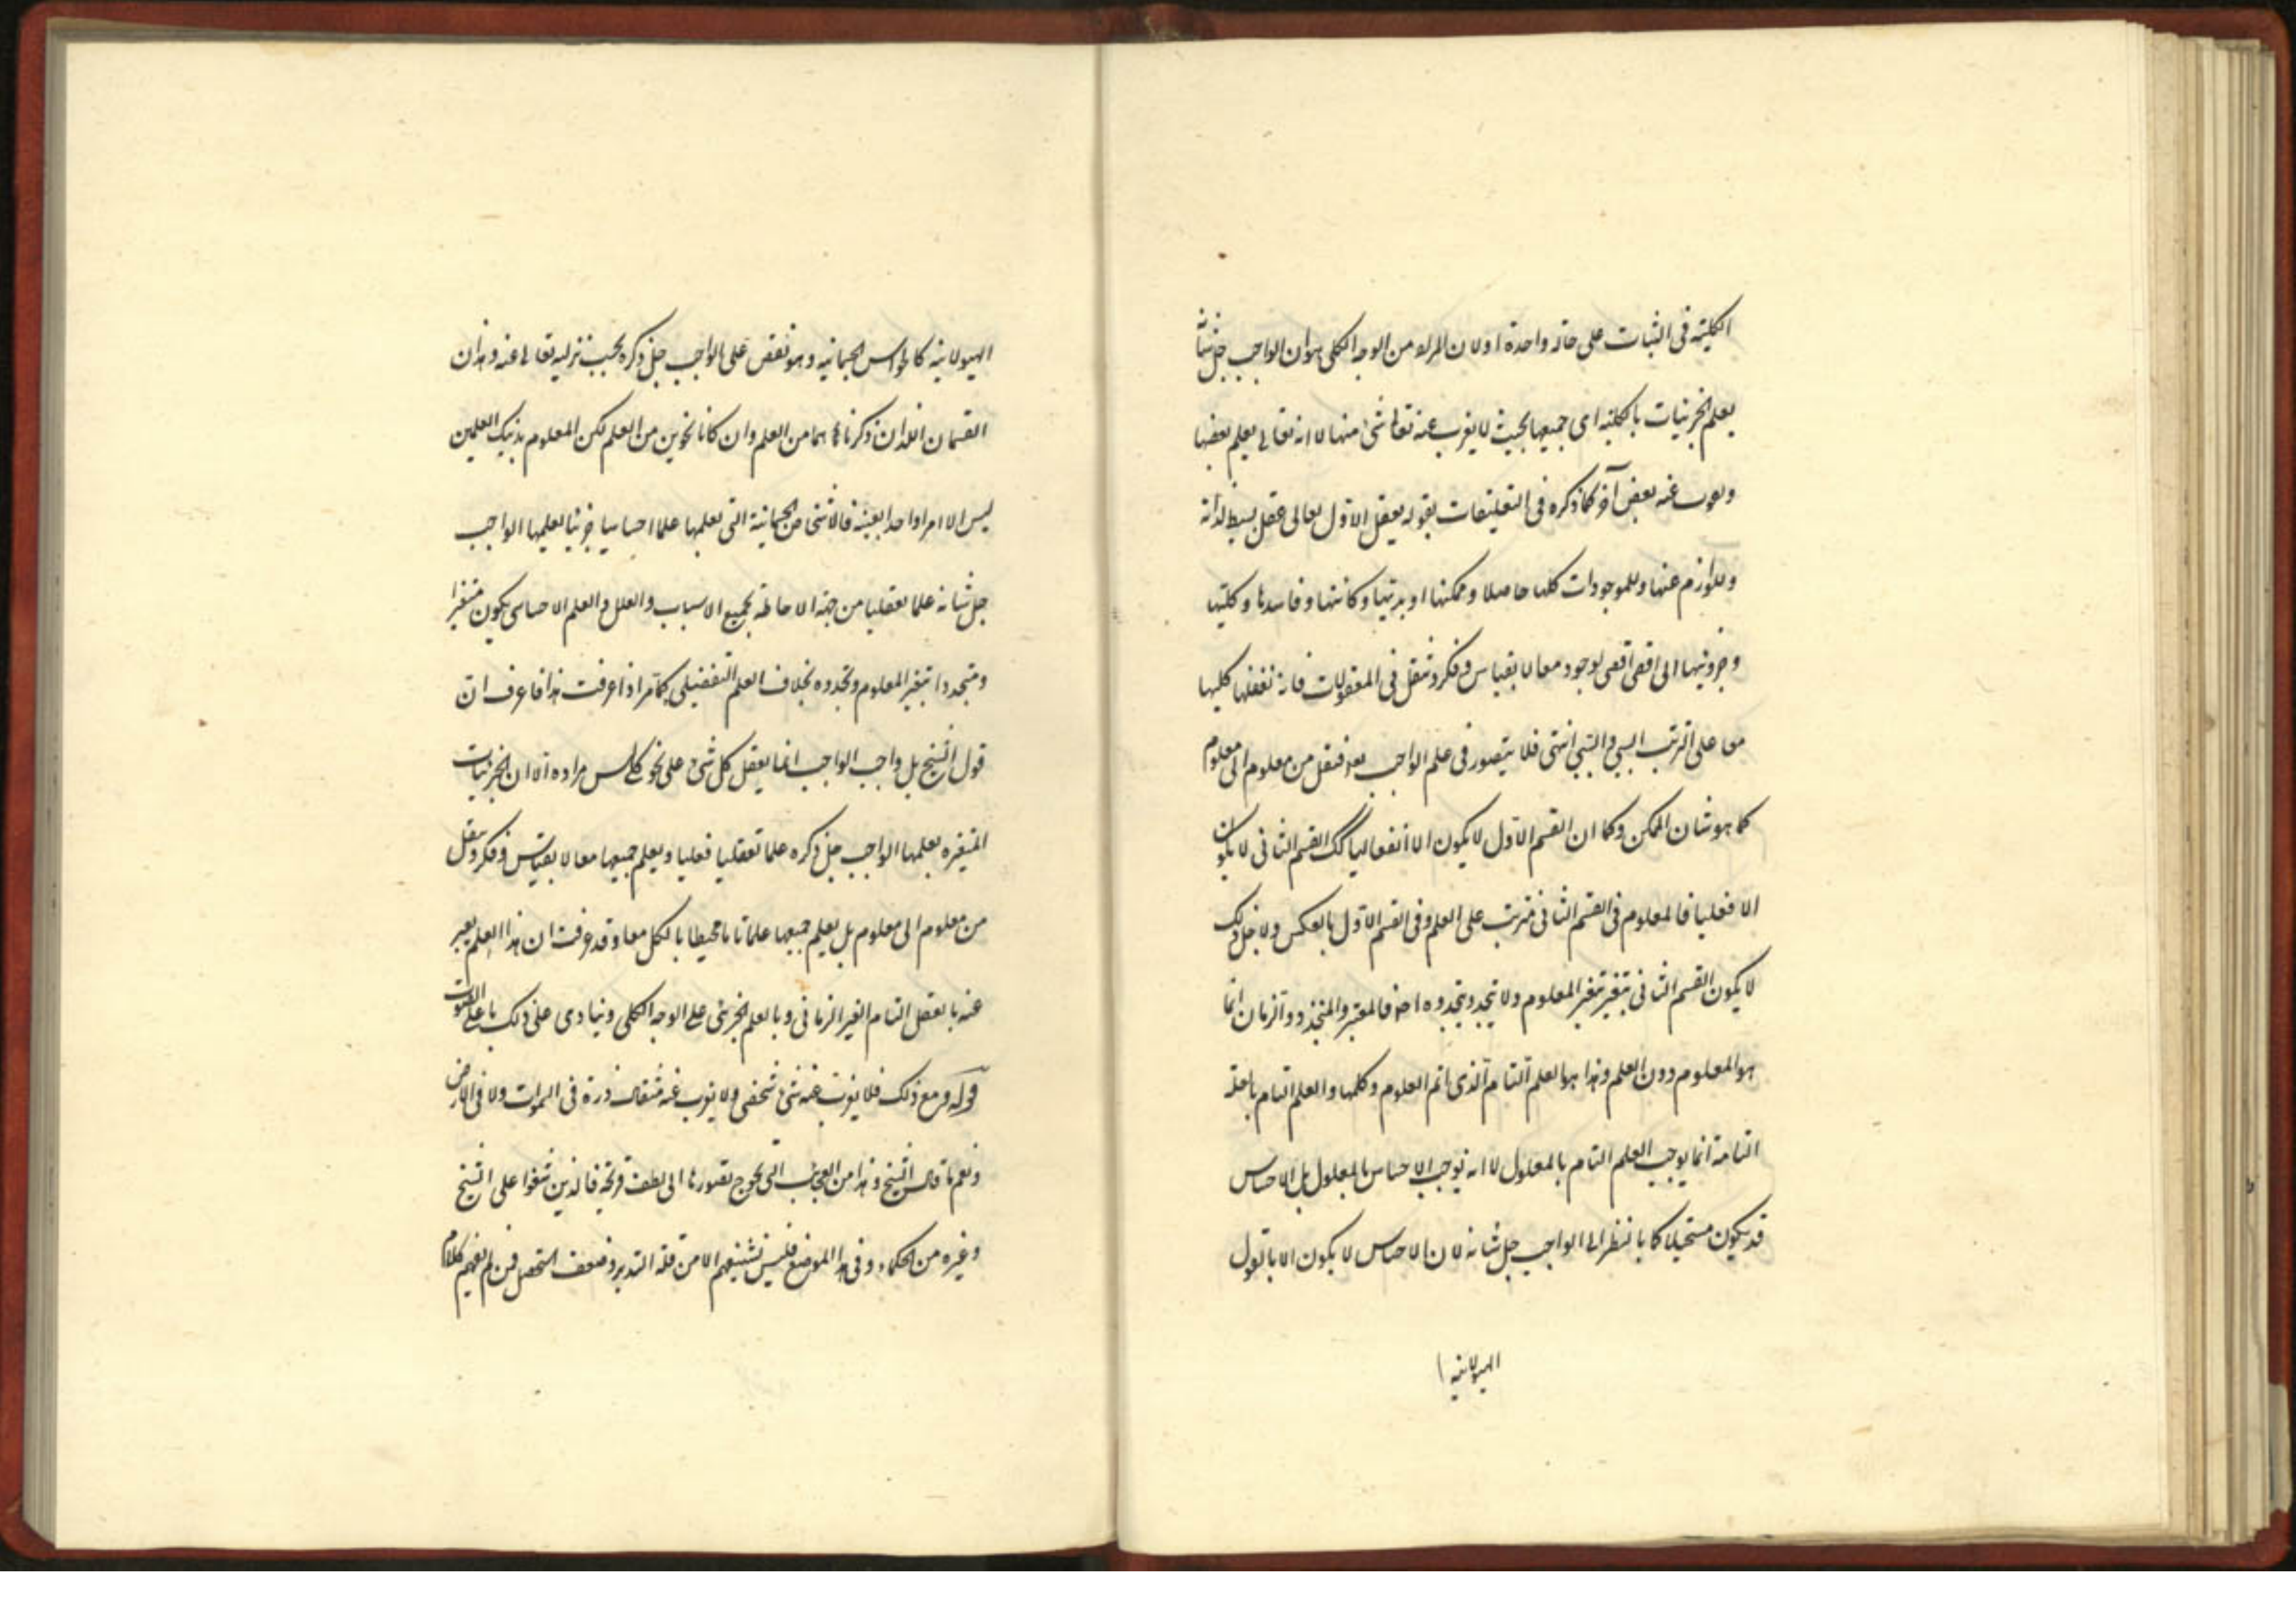 الكلية فى الثبات على حالة واحدة اولان المراد من الوجه الكلى هو ان الواجب جل شانه
يعلم الجزئيات بالكلية اى جميعها بحيث لا يغرب عنه تعالى شئ منها لا انه تعالى يعلم بعضها
ويعزب عنه بعض آخر كما ذكره فى التعليقات بقوله يعقل الاول تعالى عقل بسيط لذاته
وللوازم عنها وللموجودات كلها حاصلا وممكنها ابديتها وكائنها وفاسدها وكليتها
وجزويتها الى اقصى الوجود معا لا بقياس وفكر وتنقل فى المعقولات فانه تعقلها كليها
معا على الترتب السببى والمسببى انتهى فلا يتصور فى علم الواجب تنقل من معلوم الى معلوم
كما هو شان الممكن وكما ان القسم الاول لا يكون الا انفعاليا كك القسم الثانى لا يكون
الا فعليا فالمعلوم فى القسم الثانى مترتب على العلم وفى القسم الاول بالعكس ولاجل ذلك
لا يكون القسم الثانى بتغير المعلوم ولا يتجدد بتجدده فالمتغير والمتجدد والزمان انما
هو المعلوم دون العلم وهذا هو العلم التام الذى اتم العلوم وكلها والعلم التام بالعلة
التامة انما يوجب العلم التام بالمعلول لا انه يوجب الاحساس بالمعلول بل الاحساس
قد يكون مستحيلا كما بالنظر الى الواجب جل شانه لان الاحساس لا يكون الا بالقول
الهيولانية
الهيولانية كالحواس الجسمانية وهو نقص على الواجب جل ذكره يجب تنزيه تعالى عنه وهذان
القسمان اللذان ذكرناهما من العلم وان كانا نحوين من العلم لكن المعلوم بذينك العلمين
ليس الا امرا واحدا بعينه فالاشيئ الجسمانية التى نعلمها علما احساسيا جزئيا يعلمها الواجب
جل شانه علما تعقليا من جهة الاحاطة بجميع الاسباب والعلل والعلم الاحساسى يكون متغيرا
ومتجددا بتغير المعلوم وتجدده بخلاف العلم التعقلى كما مر اذا عرفت هذا فاعرف ان
قول الشيخ بل واجب الواجب انما يعقل كل شئ على نحو كلى ليس مراده الا ان الجزئيات
المتغيره يعلمها الواجب جل ذكره علما تعقليا فعليا ويعلم جميعها معا لا بقياس وفكر وتنقل
من معلوم الى معلوم بل يعلم جميعها علما تاما محيطا بالكل معا وقد عرفت ان هذا العلم يعبر
عنه بالعقل التام الغير الزمانى وبالعلم الجزئى على الوجه الكلى وينادى على ذلك باعلى الصوت
قوله ومع ذلك فلا يعزب عنه شئ شخصى ولا يعزب عنه مثقال ذرة فى السموات ولا فى الارض
ونعم ما قال الشيخ وهذا من العجائب التى يحوج تصورها الى لطف قريحة فالذين شنعوا على الشيخ
وغيره من الحكماء وفى هذا الموضع فليس تشنيعهم الا من قلة التدبر وضعف التحصل فمن لم يفهم كلام